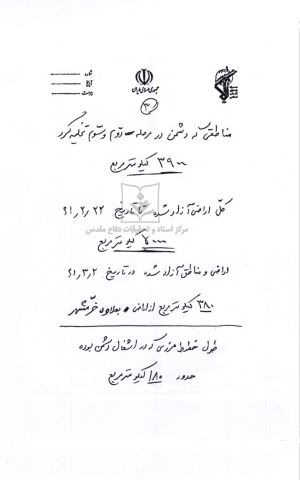 شماره
تاریخ
پیوست
جمهوری اسلامی ایران
۳
مناطقی که دشمن در مرحله دوم و سوم تخلیه کرد
۳۹۰۰ کیلومتر مربع
کل اراضی آزاد شده تا تاریخ ۶۱,۲,۲۲
کیلومتر مربع
مرکز اسناد و تحقیقات دفاع مقدس
اراضی و مناطق آزاد شده در تاریخ ۶۱,۳,۲
۳۸۰ کیلومتر مربع از اراضی بعلاوه خرمشهر
طول خطوط مرزی که در اشغال دشمن بوده
حدود ۱۸۰ کیلومتر مربع